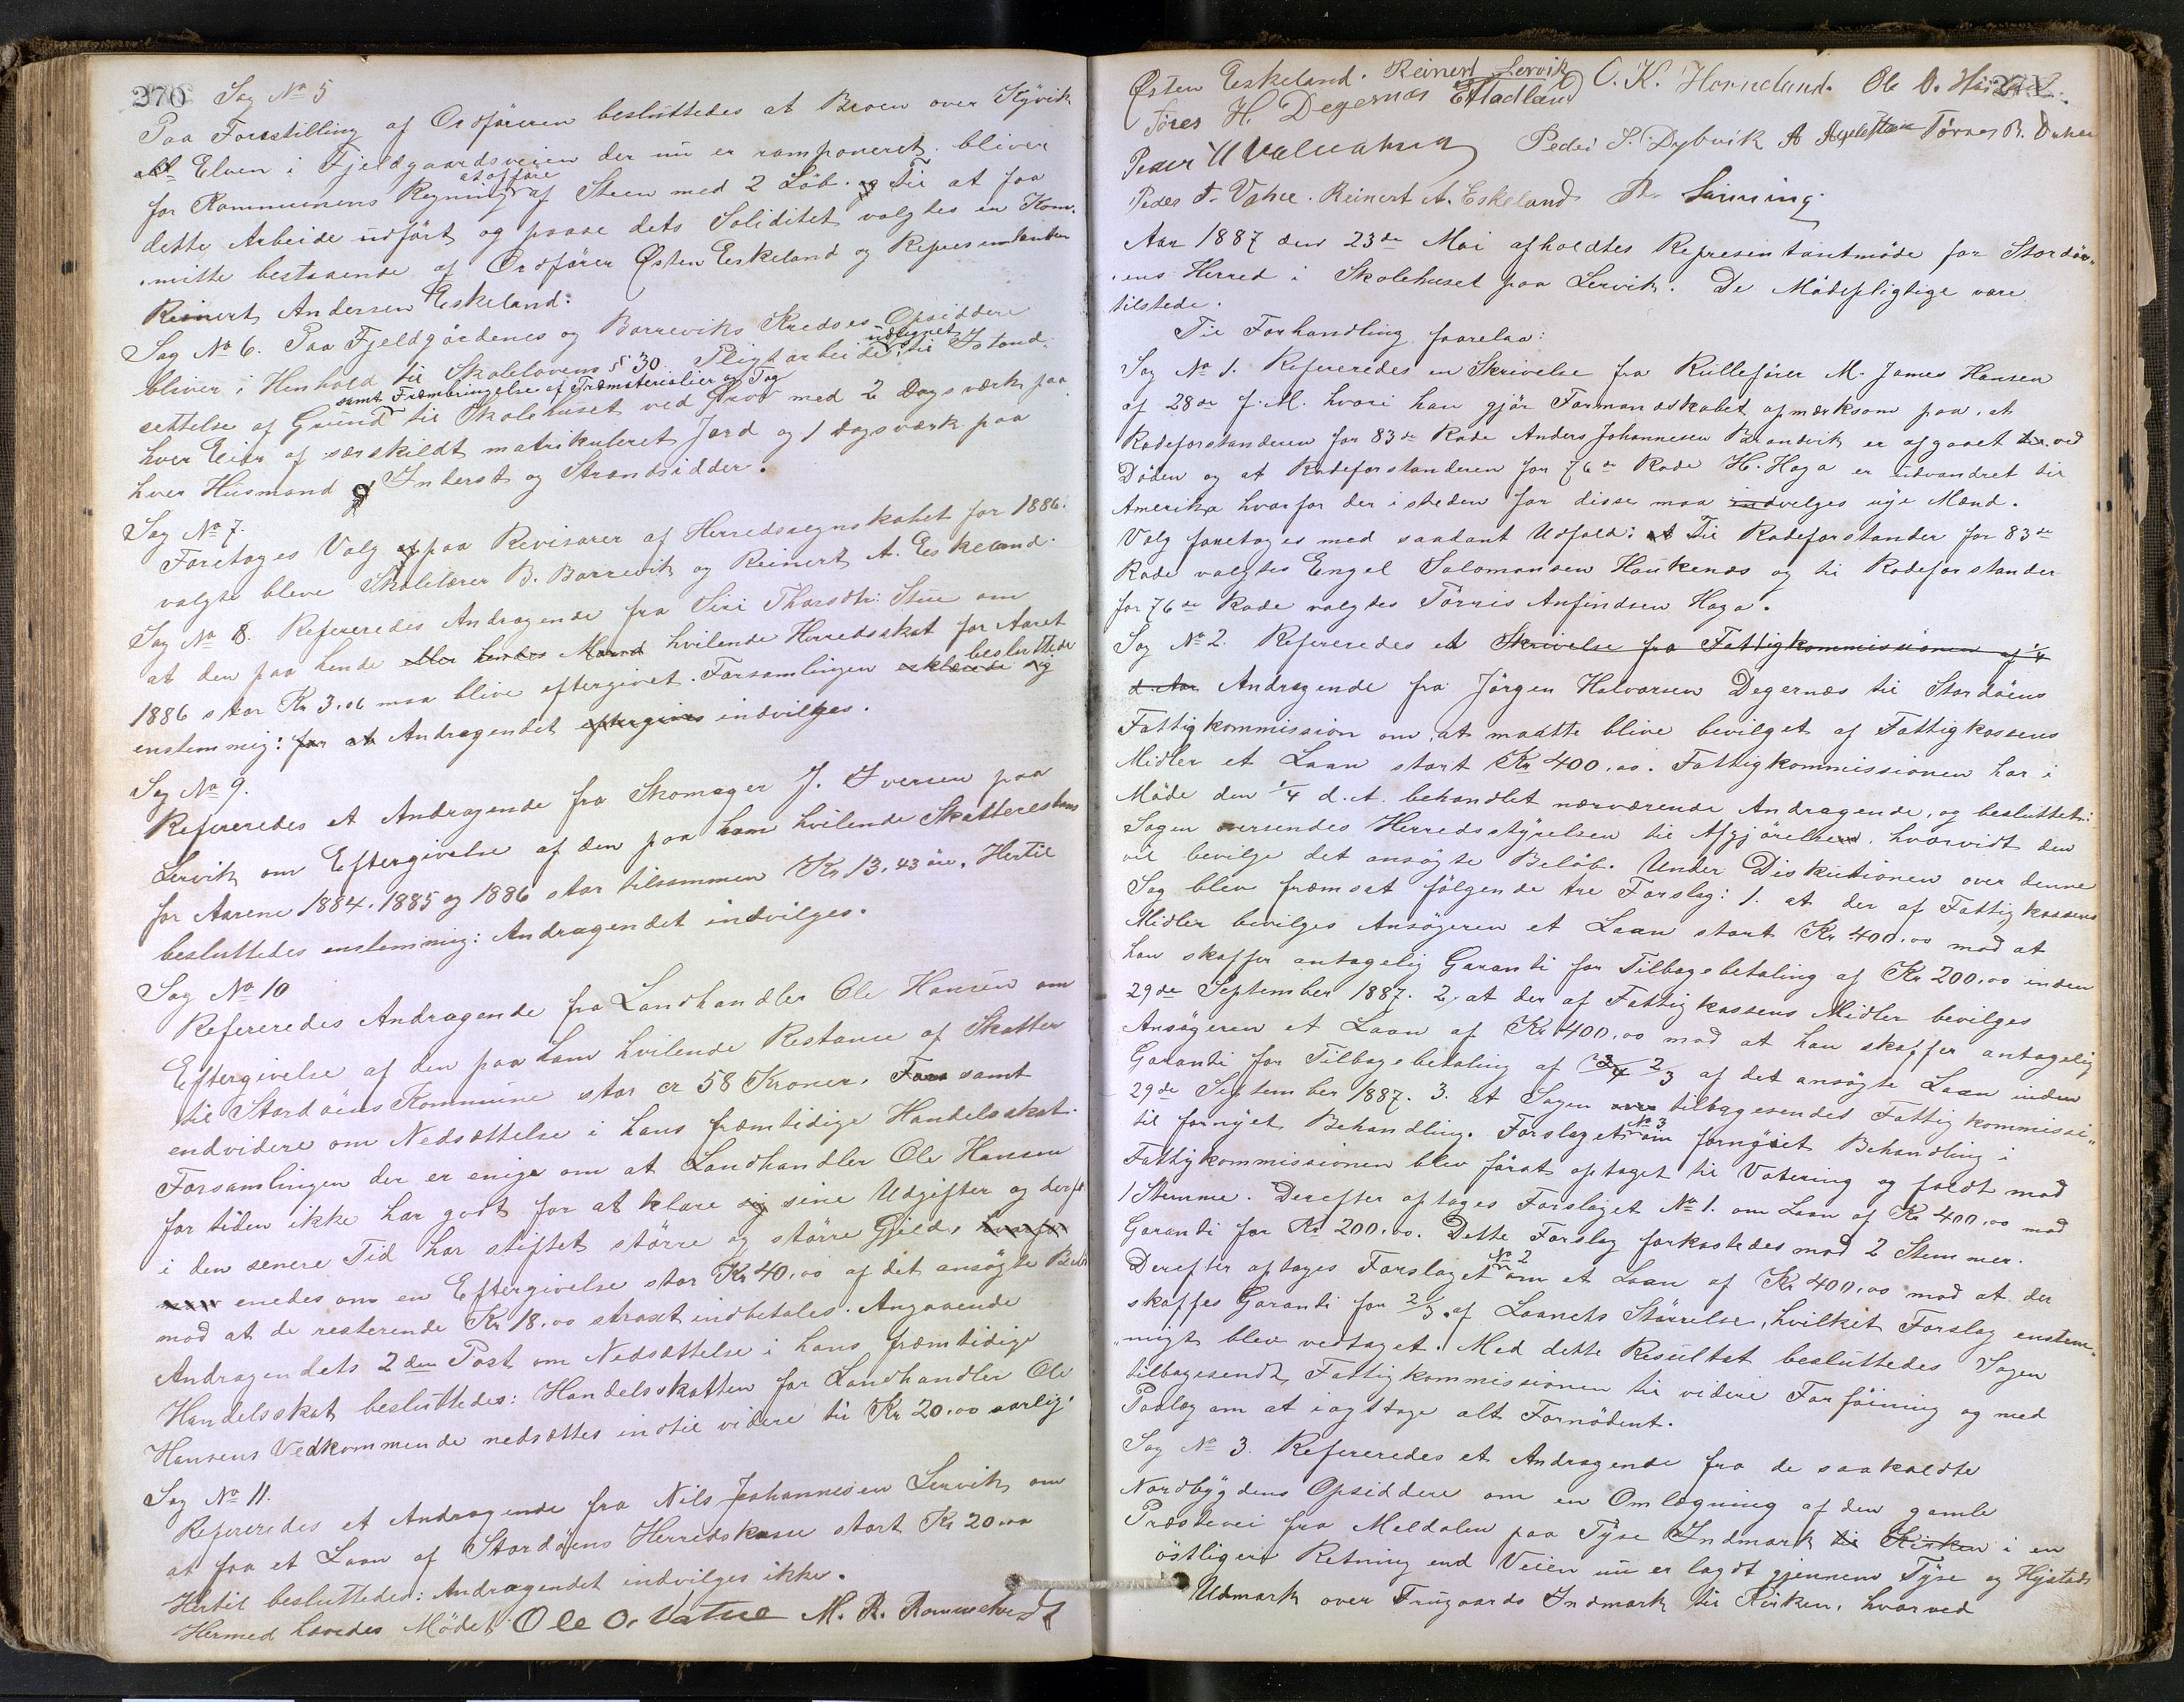 276 Sag No 5
Paa Forestilling af Ordføreren besluttedes at Broen over
Elven i Fjeldgaardsveien der nu er ramponeret bliver
for Kommunens Regning at opføre af Steen med 2 Løb. Til at faa
dette Arbeide udført og paase dets Soliditet valgtes en Kom-
mitte bestaaende af Ordfører Østen Eskeland og Repræsentanten
Reinert Andersen Eskeland.
Sag No 6. Paa Fjeldgårdenes og Borreviks Kredses Opsiddere
bliver i Henhold til Skolelovens § 30 Pligtarbeide udlignet til Istand-
settelse af Grund samt Frembringelse af Træmaterialier og Tag til Skolehuset ved med 2 Dagsværk paa
hver Eier af særskildt matrikuleret Jord og 1 Dagsværk paa
hver Husmand Inderst og Strandsidder.
Sag No 7.
Foretages Valg paa Revisorer af Herredsregnskabet for 1886.
valgte bleve Skolelærer B. Borrevik og Reinert A. Eskeland.
Sag No 8. Refereredes Andragende fra Siri Thorsdtr. Stue om
at den paa hende eller hendes Mand hvilende Herredsskat for Aaret
1886 stor Kr 3.06 maa blive eftergivet. Forsamlingen erklærede og besluttede
enstemmig: for at Andragendet eftergives indvilges.
Sag No 9.
Refereredes et Andragende fra Skomager J. Iversen paa
Lervik om Eftergivelse af den paa ham hvilende Skatterestans
for Aarene 1884. 1885 og 1886 stor tilsammen Kr 13.43 øre. Hertil
besluttedes enstemmig: Andragendet indvilges.
Sag No 10
Refereredes Andragende fra Landhandler Ole Hansen om
Eftergivelse af den paa ham hvilende Restance af Skatter
til Stordöens Kommune stor cr 58 Kroner. samt
endvidere om Nedsættelse i hans fremtidige Handelsskat.
Forsamlingen der er enige om at Landhandler Ole Hansen
for tiden ikke har godt for at klare sig sine Udgifter og derfor
i den senere Tid har stiftet större og större Gjeld, hvorfor
enedes om en Eftergivelse stor Kr 40.00 af det ansögte Beløb
mod at de resterende Kr 18.00 straxt indbetales. Angaaende
Andragendets 2den Post om Nedsættelse i hans fremtidige
Handelsskat besluttedes: Handelsskatten for Landhandler Ole
Hansens Vedkommende nedsættes indtil videre til Kr 20.00 aarlig.
Sag No 11.
Refereredes et Andragende fra Nils Johannesen Lervik om
at faa et Laan af Stordöens Herredskasse stort Kr 20.00
Hertil besluttedes: Andragendet indvilges ikke.
Hermed hævedes Mödet. Ole O. Vatne M. R. Rommetvedt
Østen Eskeland. Reinert Lervik O. K. Horneland. Ole O.
H. Degernæs E Hadland
Peder Peder S. Dybvik A
Peder T. Reinert A. Eskeland
Aar 1887 den 23de Mai afholdtes Representantmøde for Stordö-
ens Herred i Skolehuset paa Lervik. De Mødepligtige vare
tilstede.
Til Forhandling foarelaa:
Sag No 1. Refereredes en Skrivelse fra Rullefører M. James Hansen
af 28de f. M. hvori han gjör Formandskabet opmærksom paa, at
Rodeforstanderen for 83de Rode Anders Johannesen Brandvik er afgaaet ved
Döden og at Rodeforstanderen for 76de Rode H. Haga er udvandret til
Amerika hvorfor der isteden for disse maa indvelges nye Mænd.
Valg foretoges med saadant Udfald: Til Rodeforstander for 83de
Rode valgtes Engel Salomonsen Haukenæs og til Rodeforstander
for 76de Rode valgtes Törris Anfindsen Haga.
Sag No 2. Refereredes et Skrivelse fra Fattigkommissionen af 1/4
d. Aar Andragende fra Jörgen Halvorsen Degernæs til Stordöens
Fattigkommission om at maatte blive bevilget af Fattigkassens
Midler et Laan stort Kr 400.00. Fattigkommissionen har i
Möde den 1/4 d. A. behandlet nærværende Andragende, og besluttet:
Sagen oversendes Herredsstyrelsen til Afgjörelse, hvorvidt den
vil bevilge det ansögte Belöb. Under Diskutionen over denne
Sag blev fræmsat fölgende tre Forslag: 1. at der af Fattigkassens
Midler bevilges Ansögeren et Laan stort Kr 400.00 mod at
han skaffer antagelig Garanti for Tilbagebetaling af Kr 200.00 inden
29de September 1887. 2. at der af Fattigkassens Midler bevilges
Ansögeren et Laan af Kr 400.00 mod at han skaffer antagelig
Garanti for Tilbagebetaling af 2/3 af det ansögte Laan inden
29de September 1887. 3. at Sagen over tilbagesendes Fattigkommissi-
til fornyet Behandling. Forslaget No 3 om fornyet Behandling i
Fattigkommissionen blev först optaget til Votering og faldt mod
1 Stemme. Derefter optages Forslaget No 1. om Laan af Kr 400.00 mod
Garanti for Kr 200.00. Dette Forslag forkastedes mod 2 Stemmer.
Derefter optages Forslaget No 2 om et Laan af Kr 400.00 mod at der
skaffes Garanti for 2/3 af Laanets Störrelse, hvilket Forslag enstem-
migt blev vedtaget. Med dette Resultat besluttedes Sagen
tilbagesendt Fattigkommissionen til videre Forföining og med
Paalæg om at iagttage alt Fornödent.
Sag No 3. Refereredes et Andragende fra de saakaldte
Nordbygdens Opsiddere om en Omlægning af den gamle
Præstevei fra Meldalen paa Tyse Indmark til Kirken i en
östligere Retning end Veien nu er lagt gjennem Tyse og Hystads
Udmark over Frugaards Indmark til Kirken, hvorved